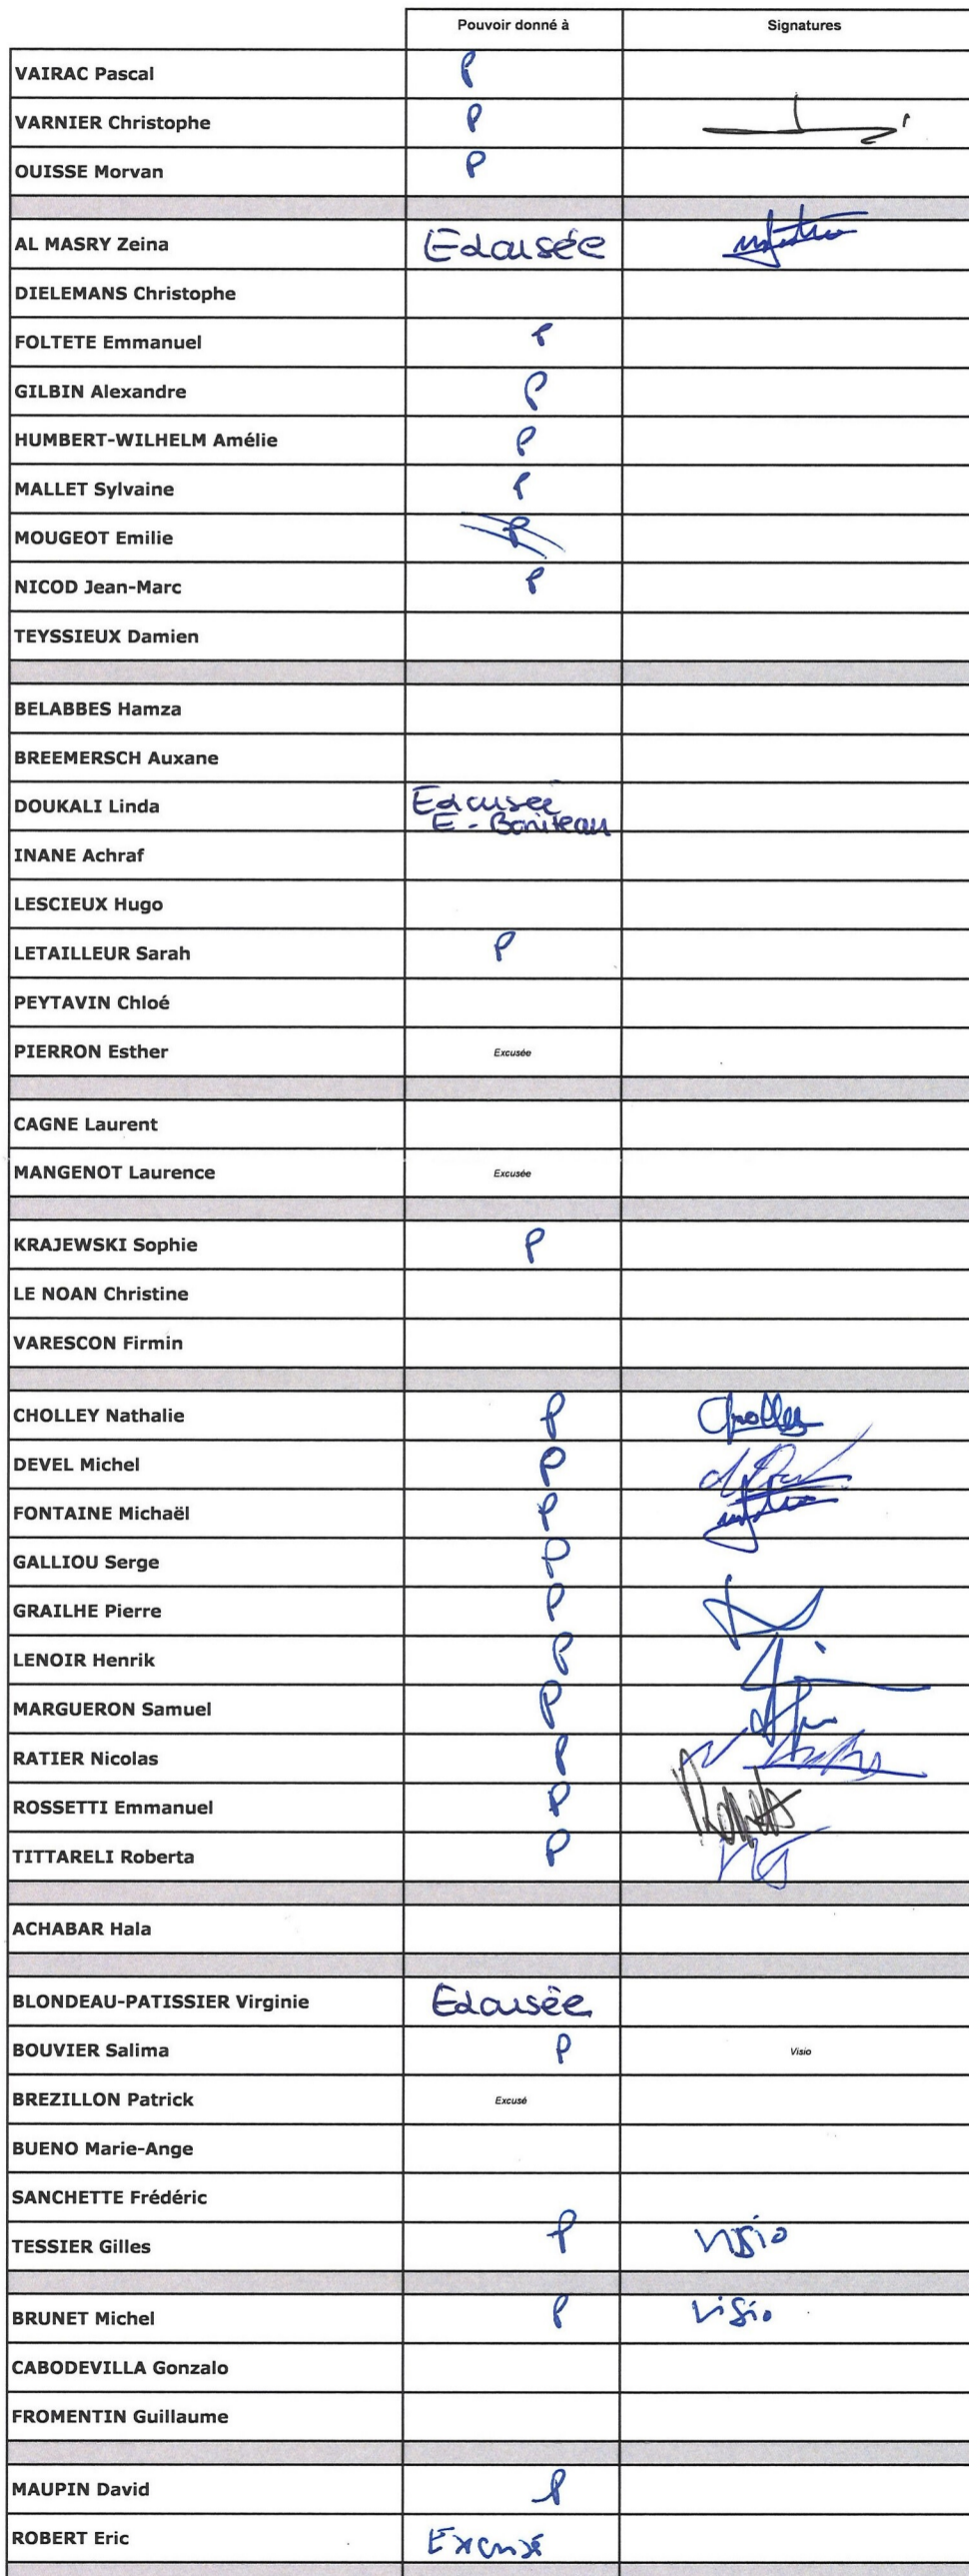 Pouvoir donné à Signatures
VAIRAC Pascal P
VARNIER Christophe P
OUISSE Morvan P
AL MASRY Zeina Excusée
DIELEMANS Christophe
FOLTETE Emmanuel P
GILBIN Alexandre P
HUMBERT-WILHELM Amélie P
MALLET Sylvaine P
MOUGEOT Emilie P
NICOD Jean-Marc P
TEYSSIEUX Damien
BELABBES Hamza
BREEMERSCH Auxane
DOUKALI Linda Excusée
E - Boniteau
INANE Achraf
LESCIEUX Hugo
LETAILLEUR Sarah P
PEYTAVIN Chloé
PIERRON Esther Excusée
CAGNE Laurent
MANGENOT Laurence Excusée
KRAJEWSKI Sophie P
LE NOAN Christine
VARESCON Firmin
CHOLLEY Nathalie P Cholley
DEVEL Michel P
FONTAINE Michaël P
GALLIOU Serge P
GRAILHE Pierre P
LENOIR Henrik P
MARGUERON Samuel P
RATIER Nicolas P
ROSSETTI Emmanuel P
TITTARELI Roberta P
ACHABAR Hala
BLONDEAU-PATISSIER Virginie Excusée
BOUVIER Salima P Visio
BREZILLON Patrick Excusé
BUENO Marie-Ange
SANCHETTE Frédéric
TESSIER Gilles P Visio
BRUNET Michel P Visio
CABODEVILLA Gonzalo
FROMENTIN Guillaume
MAUPIN David P
ROBERT Eric Excusé